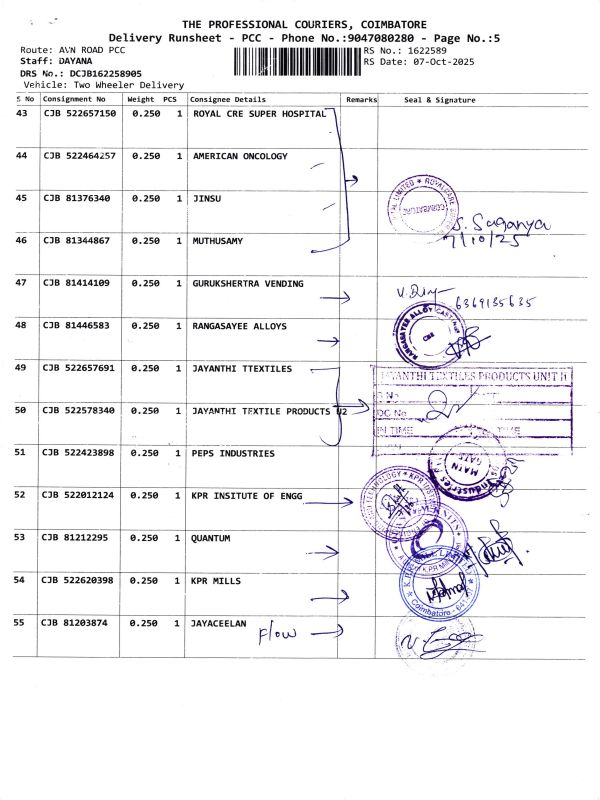 THE PROFESSIONAL COURIERS, COIMBATORE
Delivery Runsheet - PCC - Phone No.:9047080280 - Page No.:5
Route: AVN ROAD PCC
RS No.: 1622589
Staff: DAYANA
RS Date: 07-Oct-2025
DRS No.: DCJB162258905
Vehicle: Two Wheeler Delivery
S No Consignment No Weight PCS Consignee Details Remarks Seal & Signature
43 CJB 522657150 0.250 1 ROYAL CRE SUPER HOSPITAL
44 CJB 522464257 0.250 1 AMERICAN ONCOLOGY
45 CJB 81376340 0.250 1 JINSU
COIMBATORE
S. Saganya
46 CJB 81344867 0.250 1 MUTHUSAMY
7/10/25
47 CJB 81414109 0.250 1 GURUKSHERTRA VENDING
6369135635
48 CJB 81446583 0.250 1 RANGASAYEE ALLOYS
RANGASAYEE ALLOY CASTING
CBE
49 CJB 522657691 0.250 1 JAYANTHI TTEXTILES
JAYANTHI TEXTILES PRODUCTS UNIT II
50 CJB 522578340 0.250 1 JAYANTHI TEXTILE PRODUCTS U2
DC No
IN TIME
TIME
51 CJB 522423898 0.250 1 PEPS INDUSTRIES
MAIN
GATE
52 CJB 522012124 0.250 1 KPR INSITUTE OF ENGG
53 CJB 81212295 0.250 1 QUANTUM
54 CJB 522620398 0.250 1 KPR MILLS
Coimbatore
55 CJB 81203874 0.250 1 JAYACEELAN
Flow